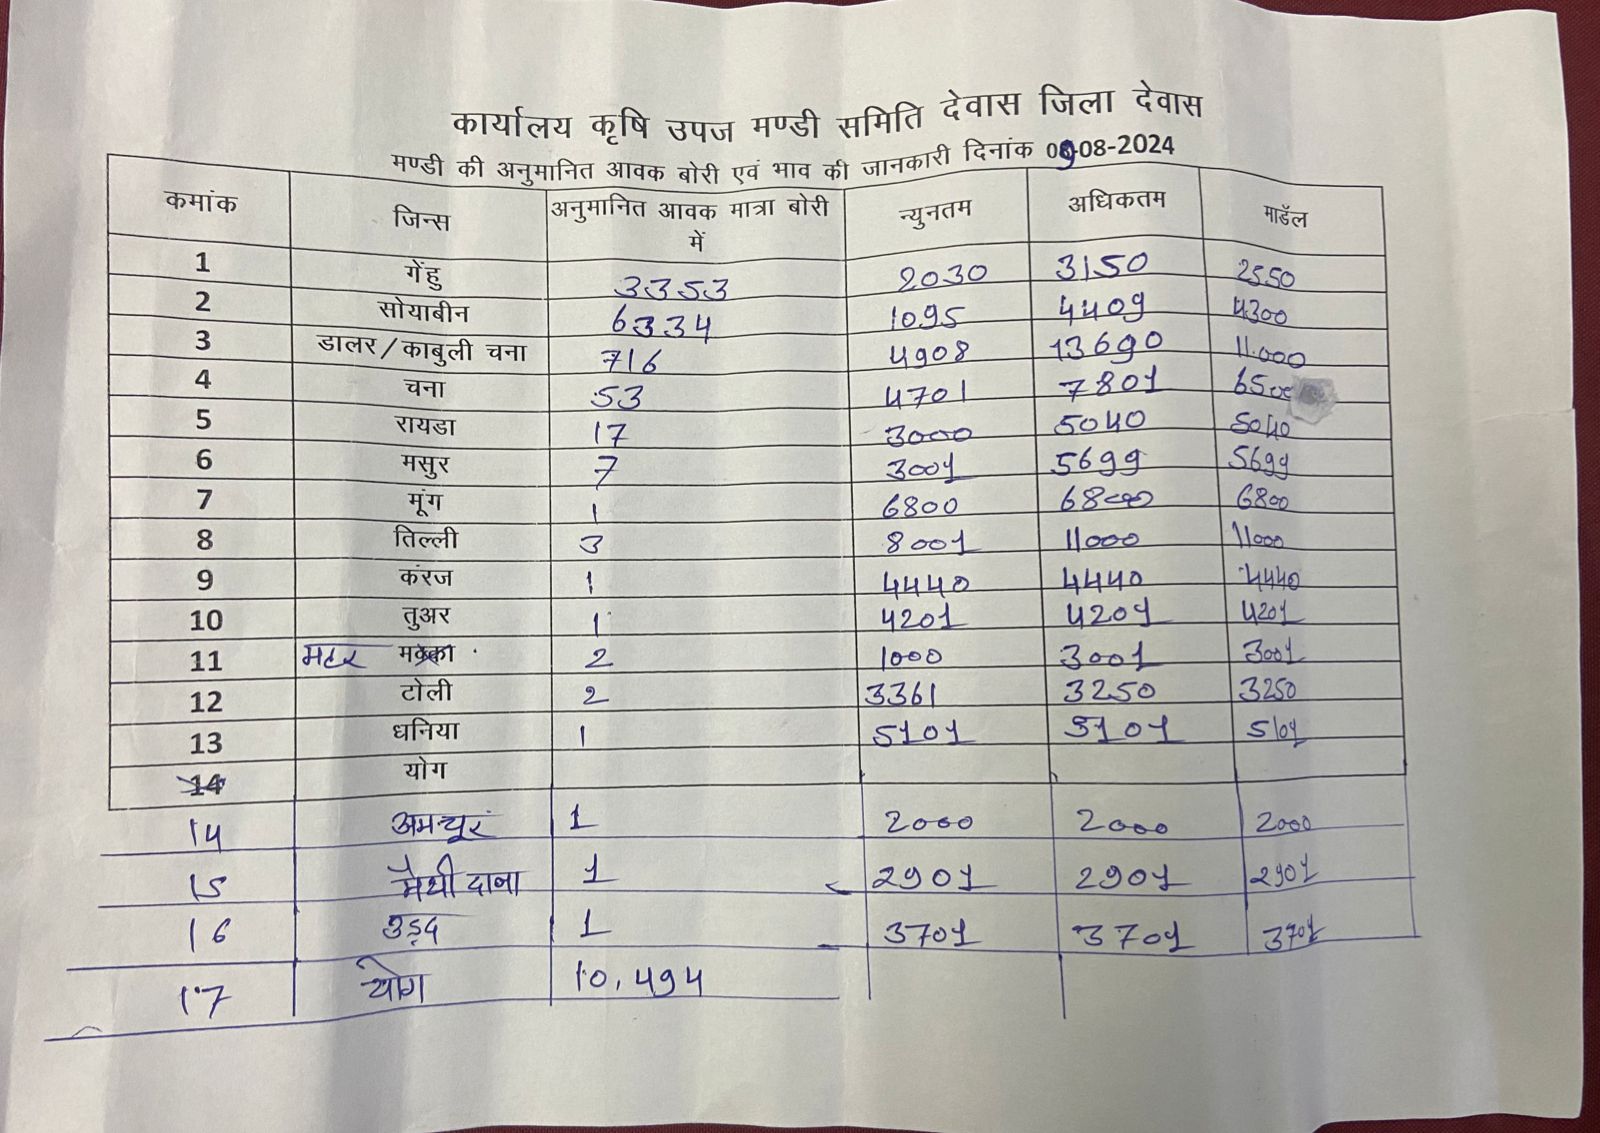 कार्यालय कृषि उपज मण्डी समिति देवास जिला देवास
मण्डी की अनुमानित आवक बोरी एवं भाव की जानकारी दिनांक 09-08-2024
कमांक जिन्स अनुमानित आवक मात्रा बोरी में न्युनतम अधिकतम माडॅल
1 गेंहु 3353 2030 3150 2550
2 सोयाबीन 6334 1095 4409 4300
3 डालर/काबुली चना 716 4908 13690 11.000
4 चना 53 4701 7801 6500
5 रायडा 17 3000 5040 5040
6 मसुर 7 3001 5699 5699
7 मूंग 1 6800 6800 6800
8 तिल्ली 3 8001 11000 11000
9 करंज 1 4440 4440 4440
10 तुअर 1 4201 4201 4201
11 मटर मक्का 2 1000 3001 3001
12 टोली 2 3361 3250 3250
13 धनिया 1 5101 5101 5101
14 योग
14 अमचूर 1 2000 2000 2000
15 मैथी दाना 1 2901 2901 2901
16 उड़द 1 3701 3701 3701
17 योग 10,494